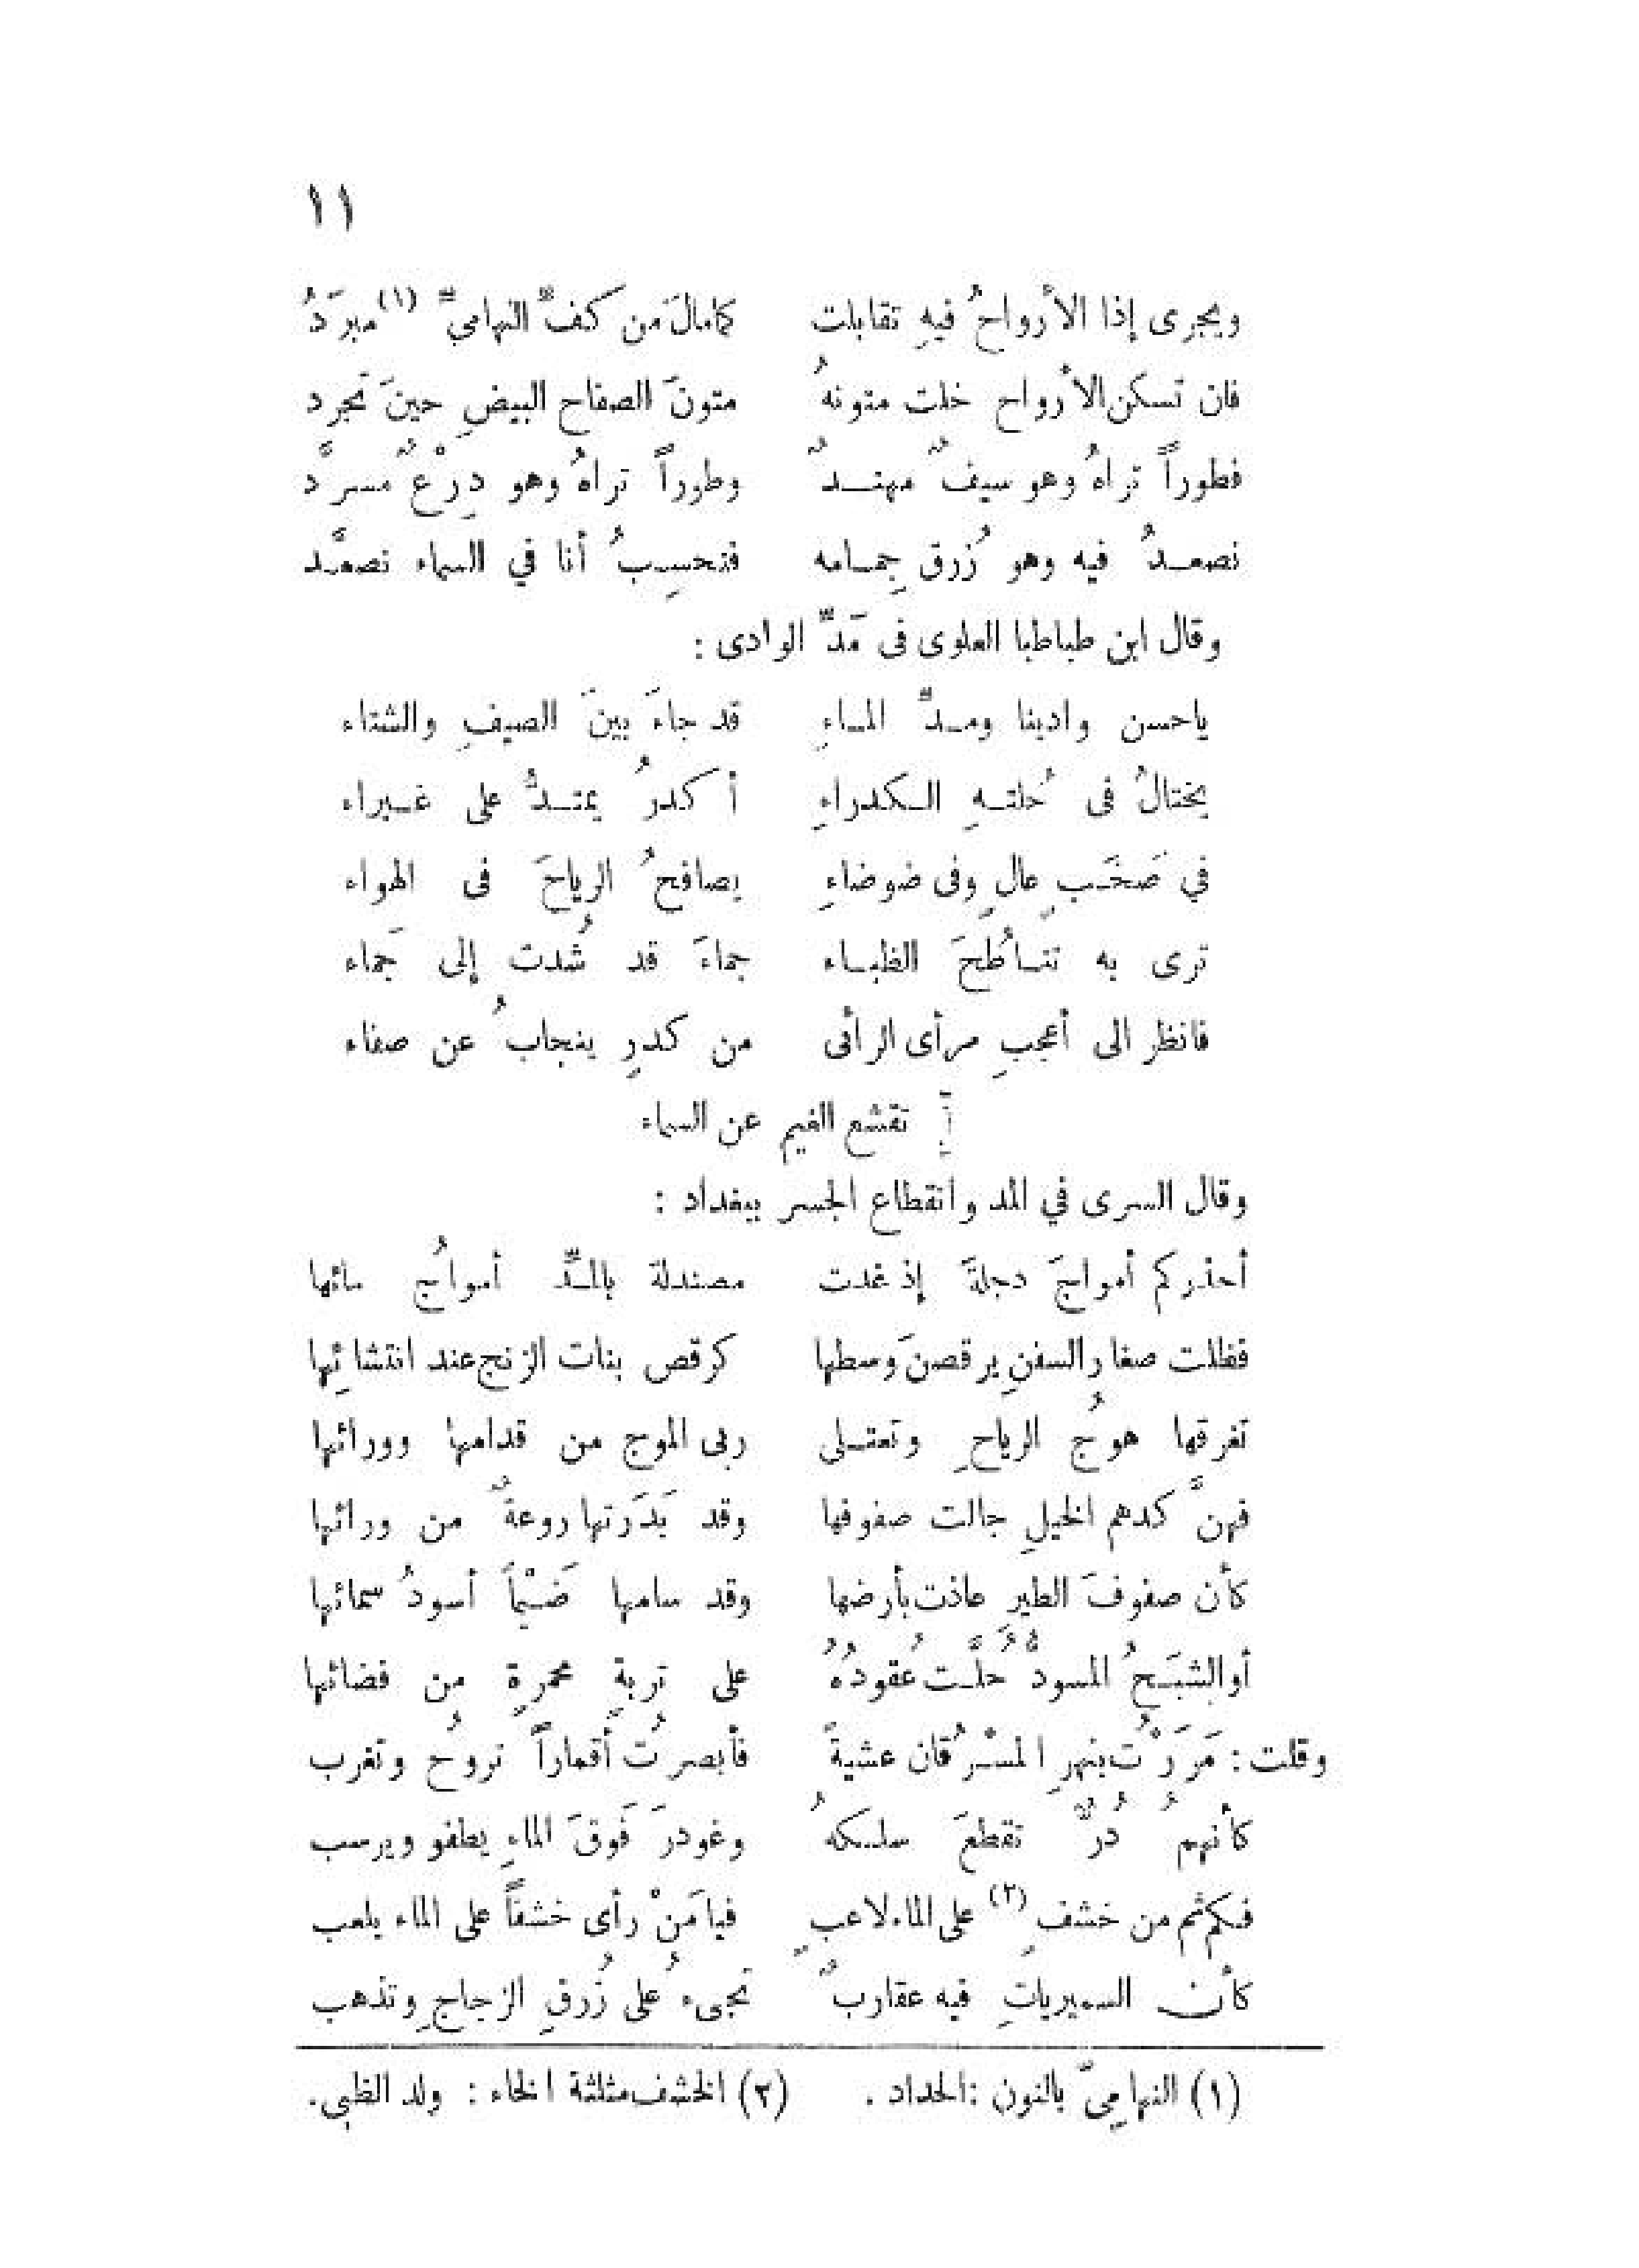 ١١
ويجرى إذا الأرواحُ فيهِ تقابلت كما مالَ من كفِّ النهاميِّ (١) مبرَدُ
فان تسكن الأرواح خلت متونهُ متونَ الصفاح البيضِ حينَ تجرد
فطوراً تراهُ وهو سيفٌ مهنـدٌ وطوراً تراهُ وهو دِرْعٌ مسرَّد
نصعـدُ فيه وهو زُرق جِمـامه فنحسِبُ أنا في السماء نصعَّد
وقال ابن طباطبا العلوى فى مَدِّ الوادى :
ياحسن وادينا ومـدِّ المـاءِ قد جاءَ بينَ الصيفِ والشتاء
يختالُ فى حُلتـهِ الـكدراءِ أكدرُ يمتـدُّ على غـبراء
في صَخَـبٍ عالٍ وفى ضوضاءِ يصافحُ الرياحَ فى الهواء
ترى به تنـاطُحَ الظبـاء جماءَ قد شُدت إلى جَماء
فانظر الى أعجبِ مرأى الرائى من كدرٍ ينجابُ عن صفاء
تقشع الغيم عن السماء
وقال السرى في المد وانقطاع الجسر ببغداد :
أحذركم أمواجَ دجلةَ إذ غدت مصندلة بالمـدِّ أمواجُ مائها
فظلت صغار السفنِ يرقصنَ وسطها كرقص بنات الزنج عند انتشائِها
تغرقها هوجُ الرياحِ وتعتـلى ربى الموج من قدامها وورائها
فهنَّ كدهم الخيلِ جالت صفوفها وقد بَدَرَتها روعةٌ من ورائها
كأن صفوفَ الطيرِ عاذت بأرضها وقد سامها ضَـيْماً أسودُ سمائها
أو الشبَـحُ المسودُّ حُلَّـت عُقودُهُ على تربةٍ محمرةٍ من فضائها
وقلت : مَرَرْتُ بنهرِ المسْرُقان عشيةً فأبصرتُ أقماراً تروحُ وتغرب
كأنهمُ دُرٌّ تقطعَ سلـكهُ وغودرَ فَوقَ الماءِ يطفو ويرسب
فـكم ثم من خشفٍ (٢) على الماء لاعبٍ فيا مَنْ رأى خشفاً على الماء يلعب
كأن السميرياتِ فيه عقاربٌ تجىءُ على زُرقِ الزجاجِ وتذهب
(١) النهاميّ بالنون : الحداد . (٢) الخشف مثلثة الخاء : ولد الظبي.